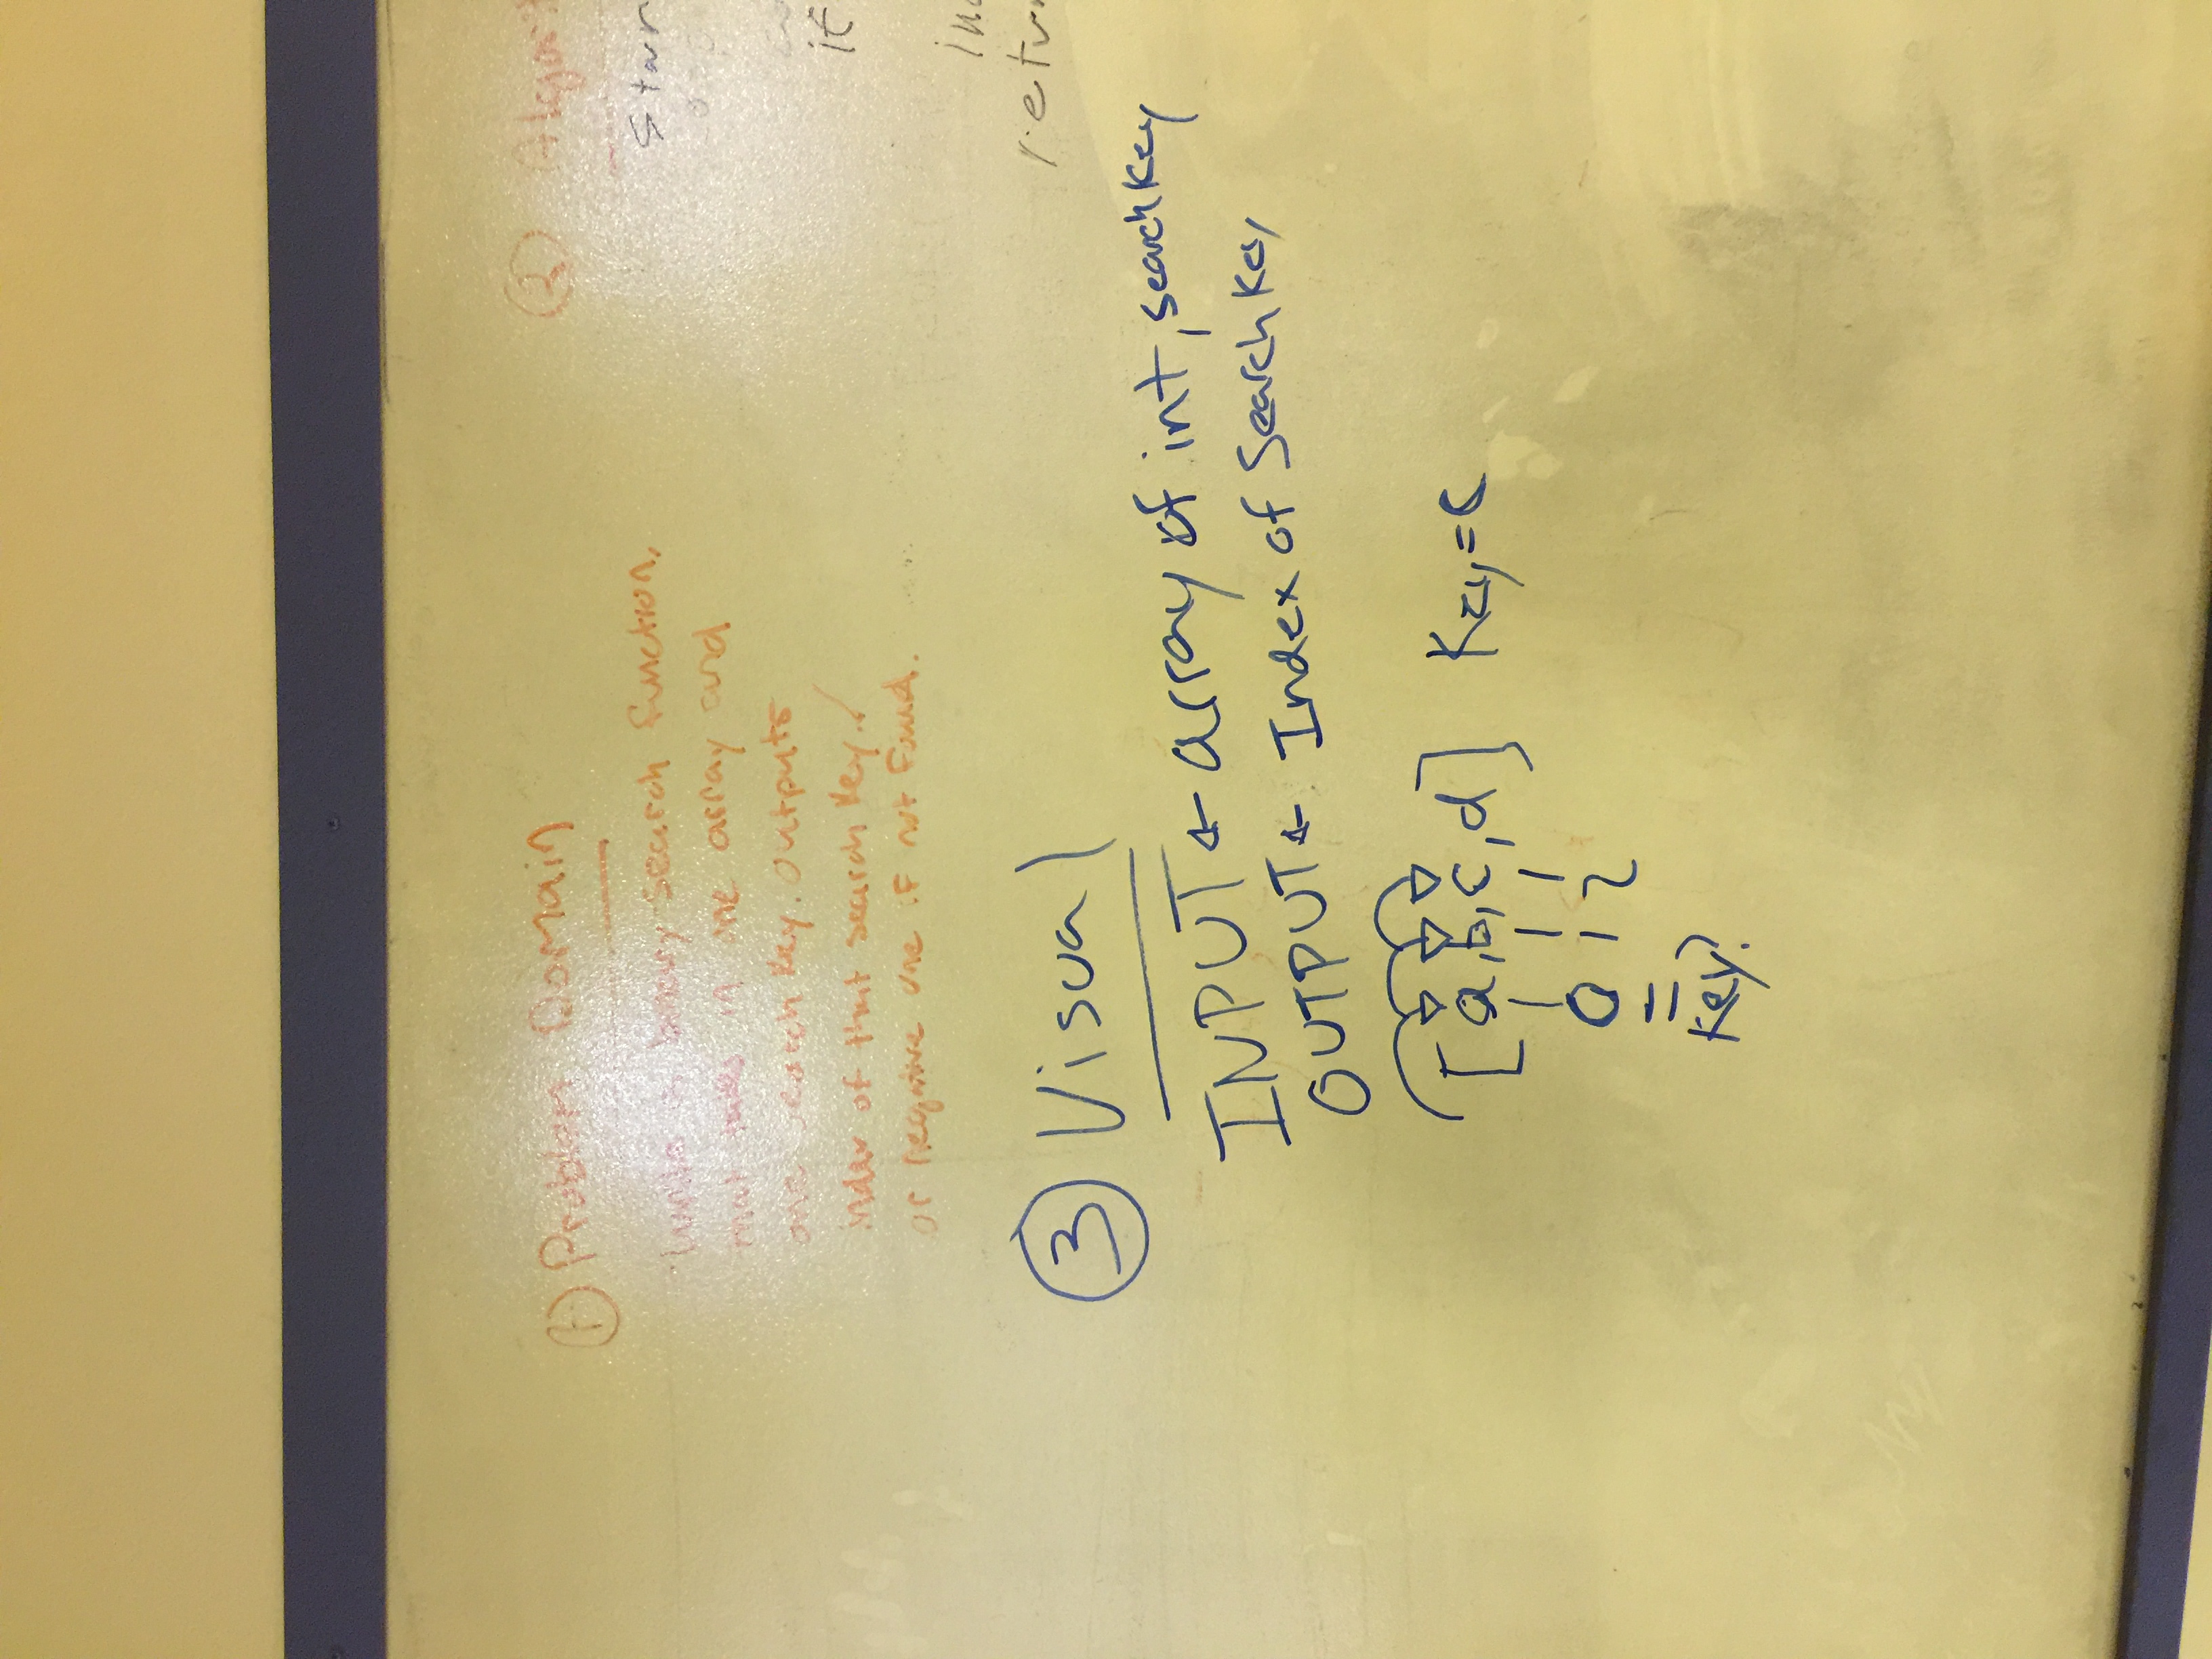 ① Problem Domain
Write a binary search function,
that takes in one array and
one search key. Outputs
index of that search key.
or negative one if not found.
② Algorit
Star
if
ind
retur
③ Visual
INPUT ← array of int, searchkey
OUTPUT ← Index of Search Key
[a, b, c, d] Key=c
0 1 2
=
Key?